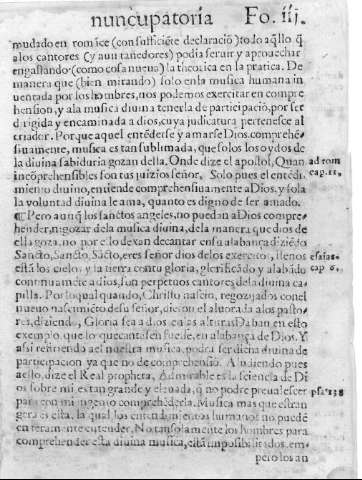 nuncupatoria Fo. iij.
mudado en romãce (con suffiçiẽte declaraciõ) todo aq̃llo q̃
a los cantores (y aun tañedores) podia seruir y aprouechar
engastando (como cosa nueua) la theorica en la pratica. De
manera que (bien mirando) solo en la musica humana in
uentada por los hombres, nos podemos exercitar en compre
hension, y a la musica diuina tenerla de participaciõ, por ser
dirigida y encaminada a dios, cuya judicatura pertenesce al
criador. Porque aquel entẽderse y amarse Dios comprehẽ
siuamente, musica es tan sublimada, que solos los oydos de
la diuina sabiduria gozan della. Onde dize el apostol, Quan
incõprehensibles son tus juizios señor. Solo pues el entẽdi
miento diuino, entiende comprehensiuamente a Dios, y sola
la voluntad diuina le ama, quanto es digno de ser amado.
¶ Pero aunq̃ los sanctos angeles, no puedan a Dios compre
hender, ni gozar dela musica diuina, dela manera que dios de
ella goza, no por esso dexan decantar en su alabança diziẽdo
Sancto, Sancto, Sãcto, eres señor dios delos exercitos, llenos
estã los cielos y la tierra con tu gloria, glorificãdo y alabãdo
continuamẽte a dios, son perpetuos cantores dela diuina ca
pilla. Por lo qual quando, Christo nascio, regozijados conel
nueuo nascimiẽto de su señor, dieron el aluorada alos pasto-
res, diziendo, Gloria sea a dios en las alturas Daban en esto
exemplo, que lo que cantassen fuesse, en alabança de Dios. Y
assi refiriendo a el nuestra musica, podra ser dicha diuina de
participacion ya que no de comprehensiõ. Aludiendo pues
a esto, dize el Real propheta, Admirable es la sciencia de Di
os sobre mi, es tan grande y eleuada, q̃ no podre preualescer
para con mi ingenio comprehẽderla. Musica mas que estran
gera es esta, la qual los entendimientos humanos no puedẽ
enteramente entender. No tan solamente los hombres para
comprehender esta diuina musica, estã impossibilitados, em-
pero los an
ad rom
cap. 11.
esaias
cap 6.
psl 138